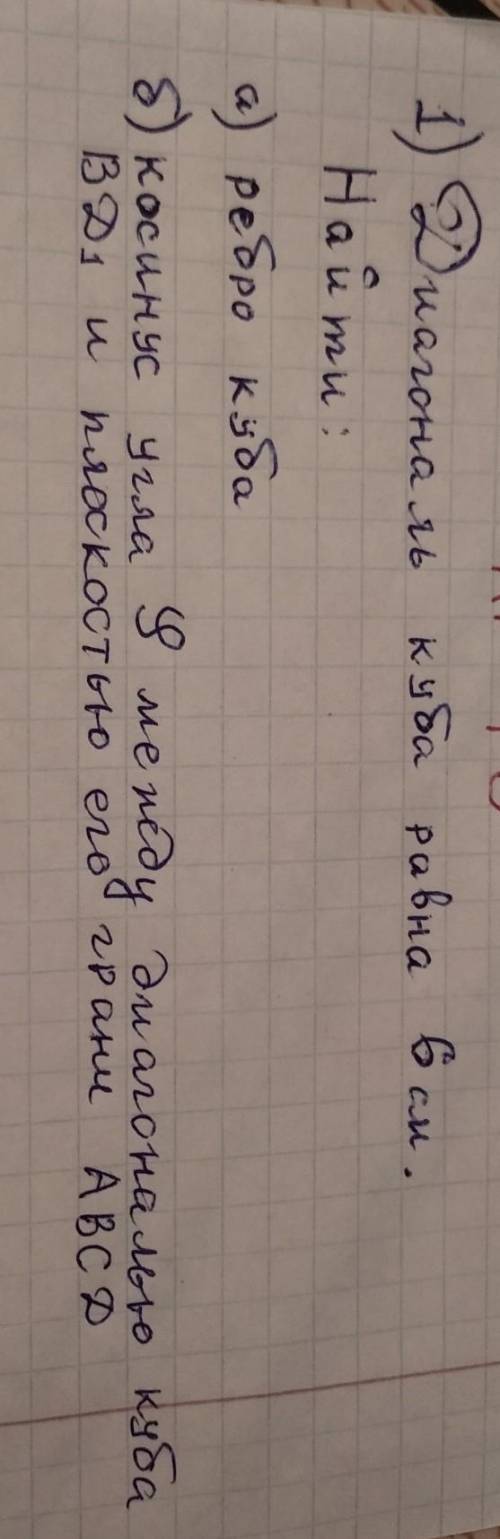 1) Диагональ куба равна 6 см.
Найти:
а) ребро куба
б) косинус угла φ между диагональю куба
ВД₁ и плоскостью его грани АВСД